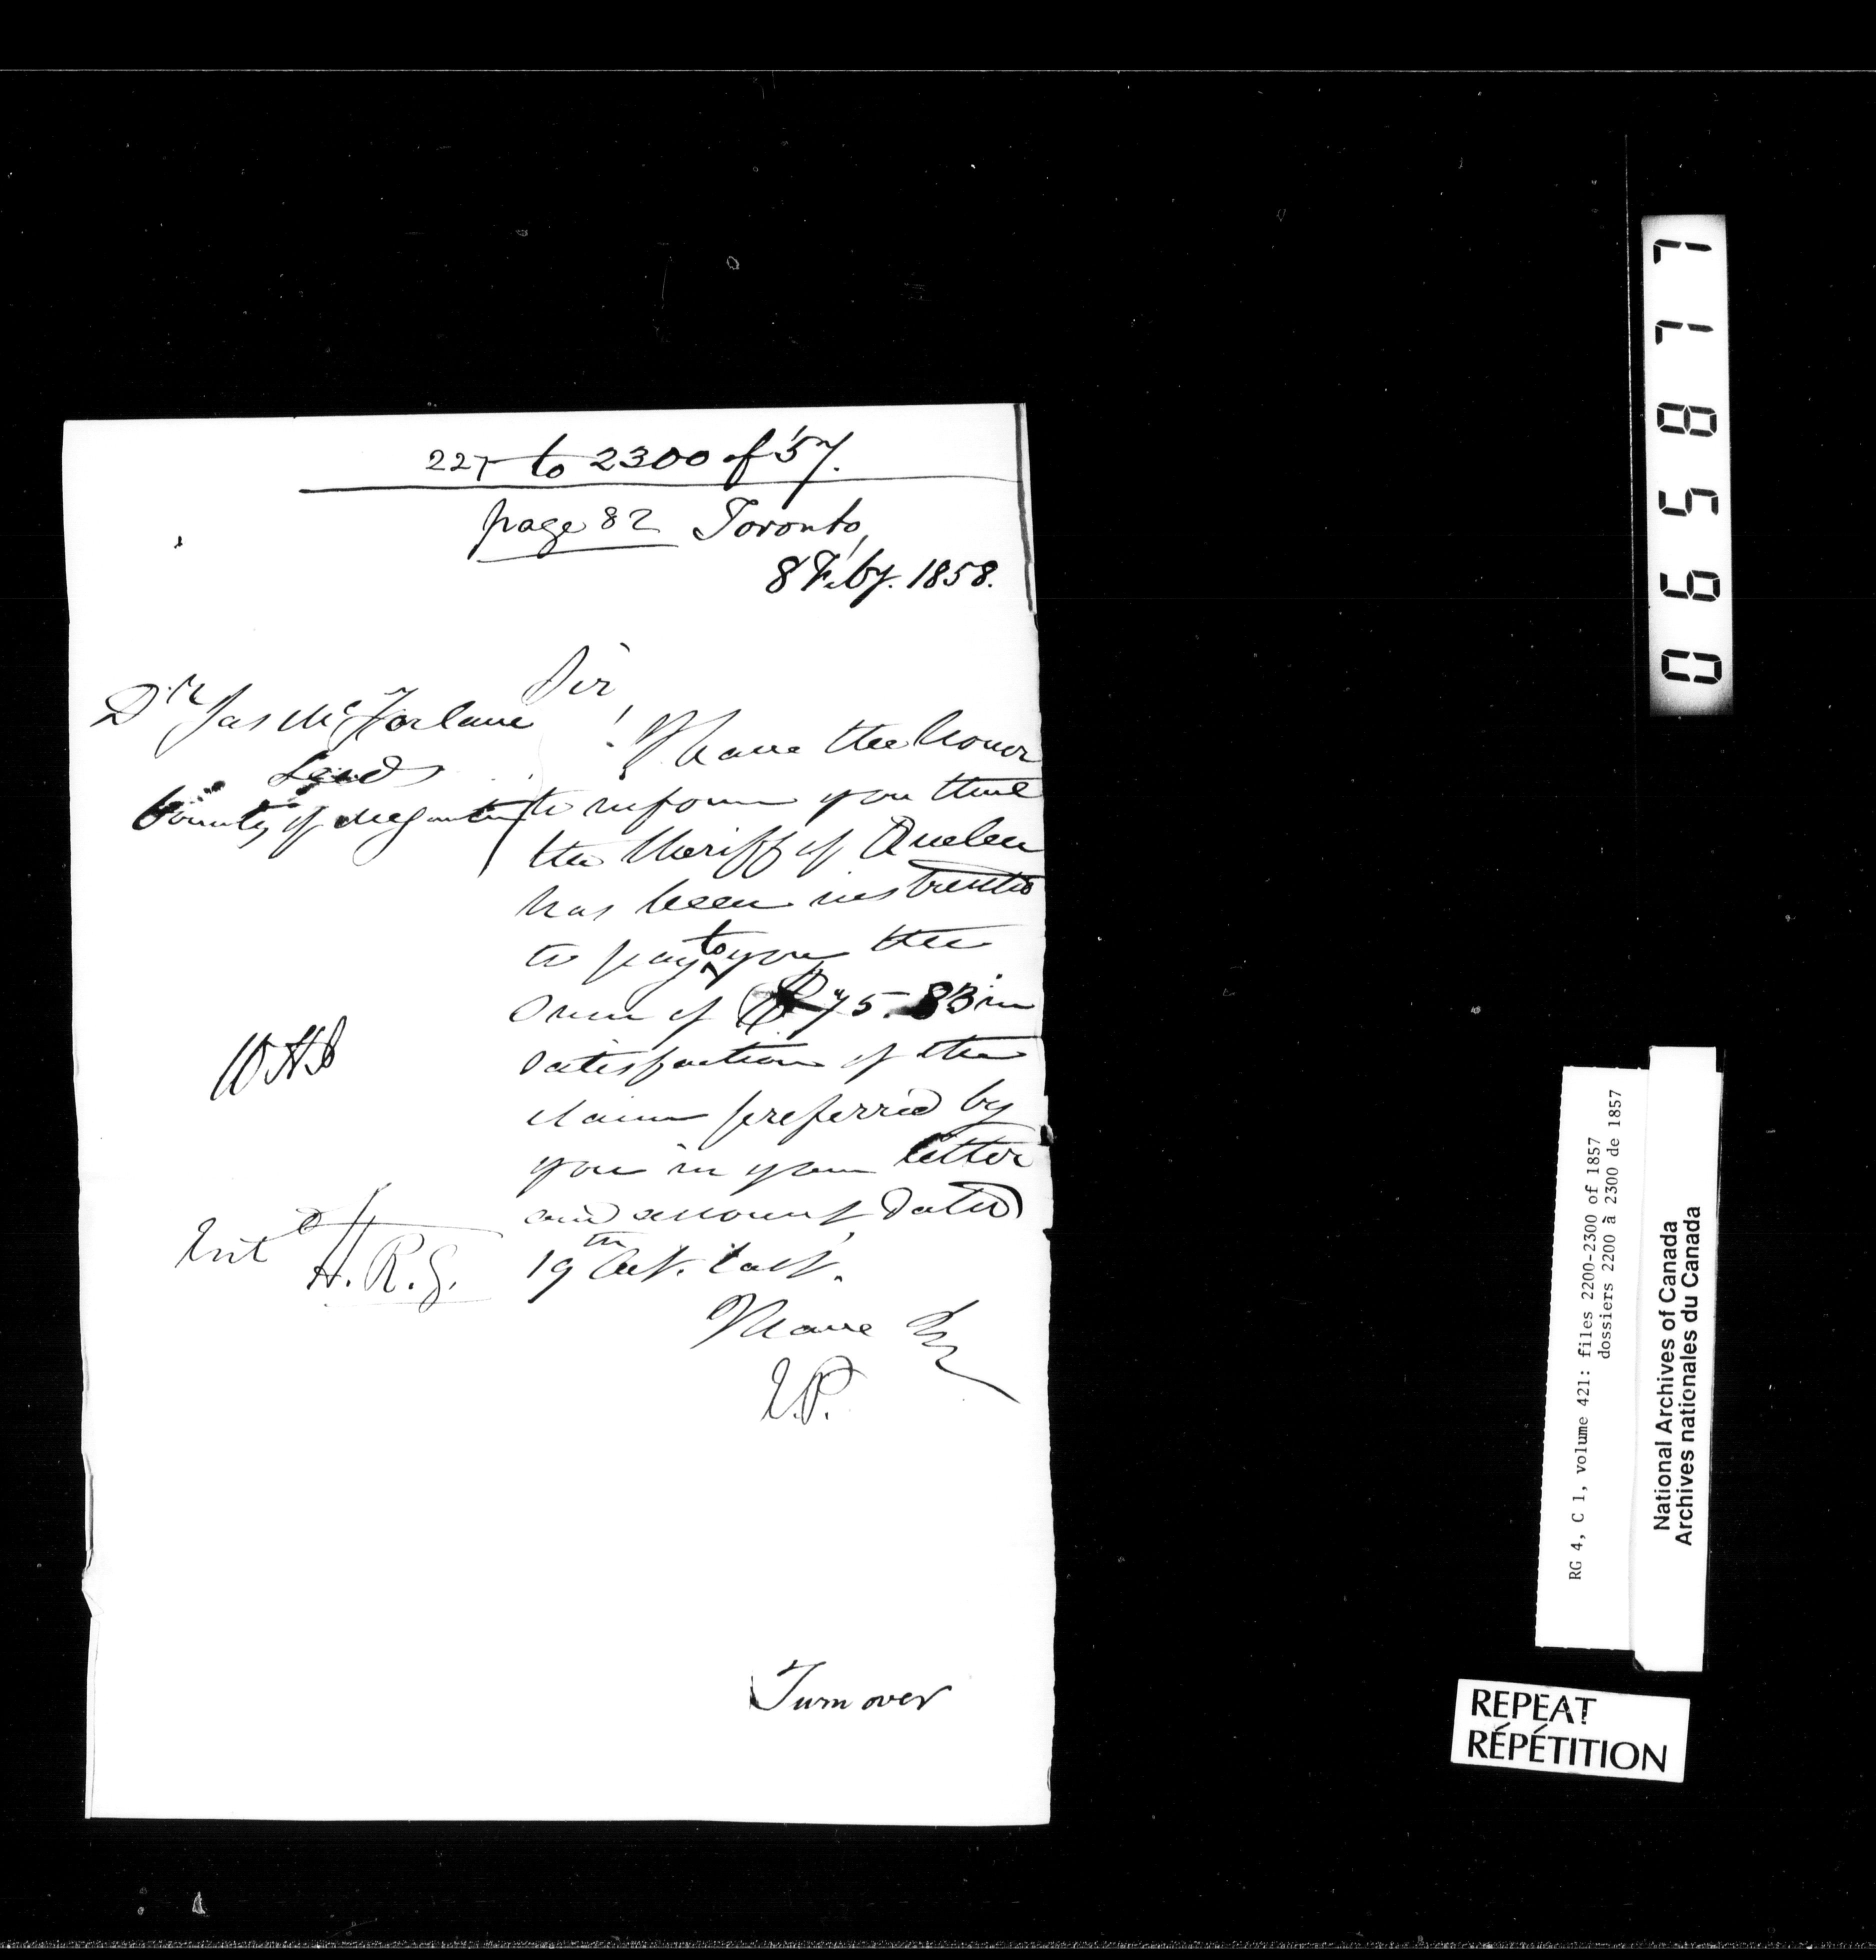 227 to 2300 of '57.
page 82 Toronto,
8 F'by. 1858.
Sir
Dr Jas McFarlane
Leeds
County of Megantic
I have the honor
to inform you that
the Sheriff of Quebec
has been instructed
to pay to you the
sum of $75.83 in
satisfaction of the
claim preferred by
you in your letter
and account dated
19th Oct. last.
I have &c
E.P.
Entd H.R.G.
Turn over
065877
RG 4, C 1, volume 421: files 2200-2300 of 1857
dossiers 2200 à 2300 de 1857
National Archives of Canada
Archives nationales du Canada
REPEAT
RÉPÉTITION